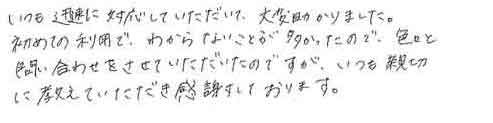 いつも迅速に対応していただいて、大変助かりました。
初めての利用で、わからないことが多かったので、色々と
問い合わせをさせていただいたのですが、いつも親切
に教えていただき感謝しております。